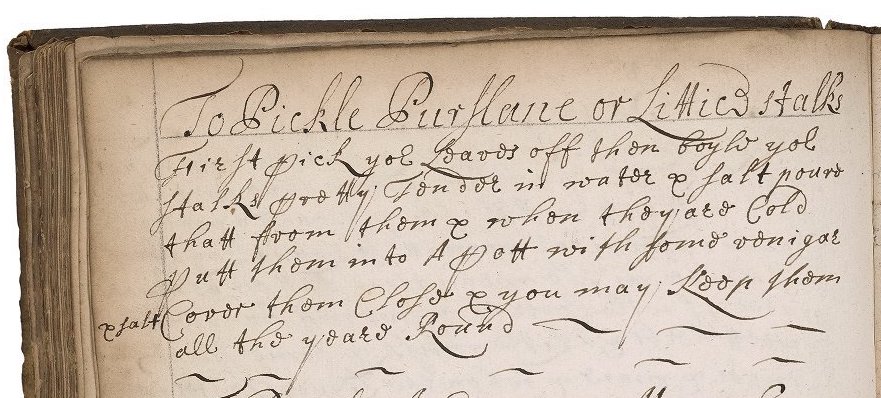 To Pickle Purslane or Litticd stalks
First pick yor Leaves off then boyle yor
stalks pretty Tender in water & salt poure
thatt from them & when they are Cold
Putt them into A Pott with some venigar
& salt Cover them Close & you may Keep them
all the yeare Round